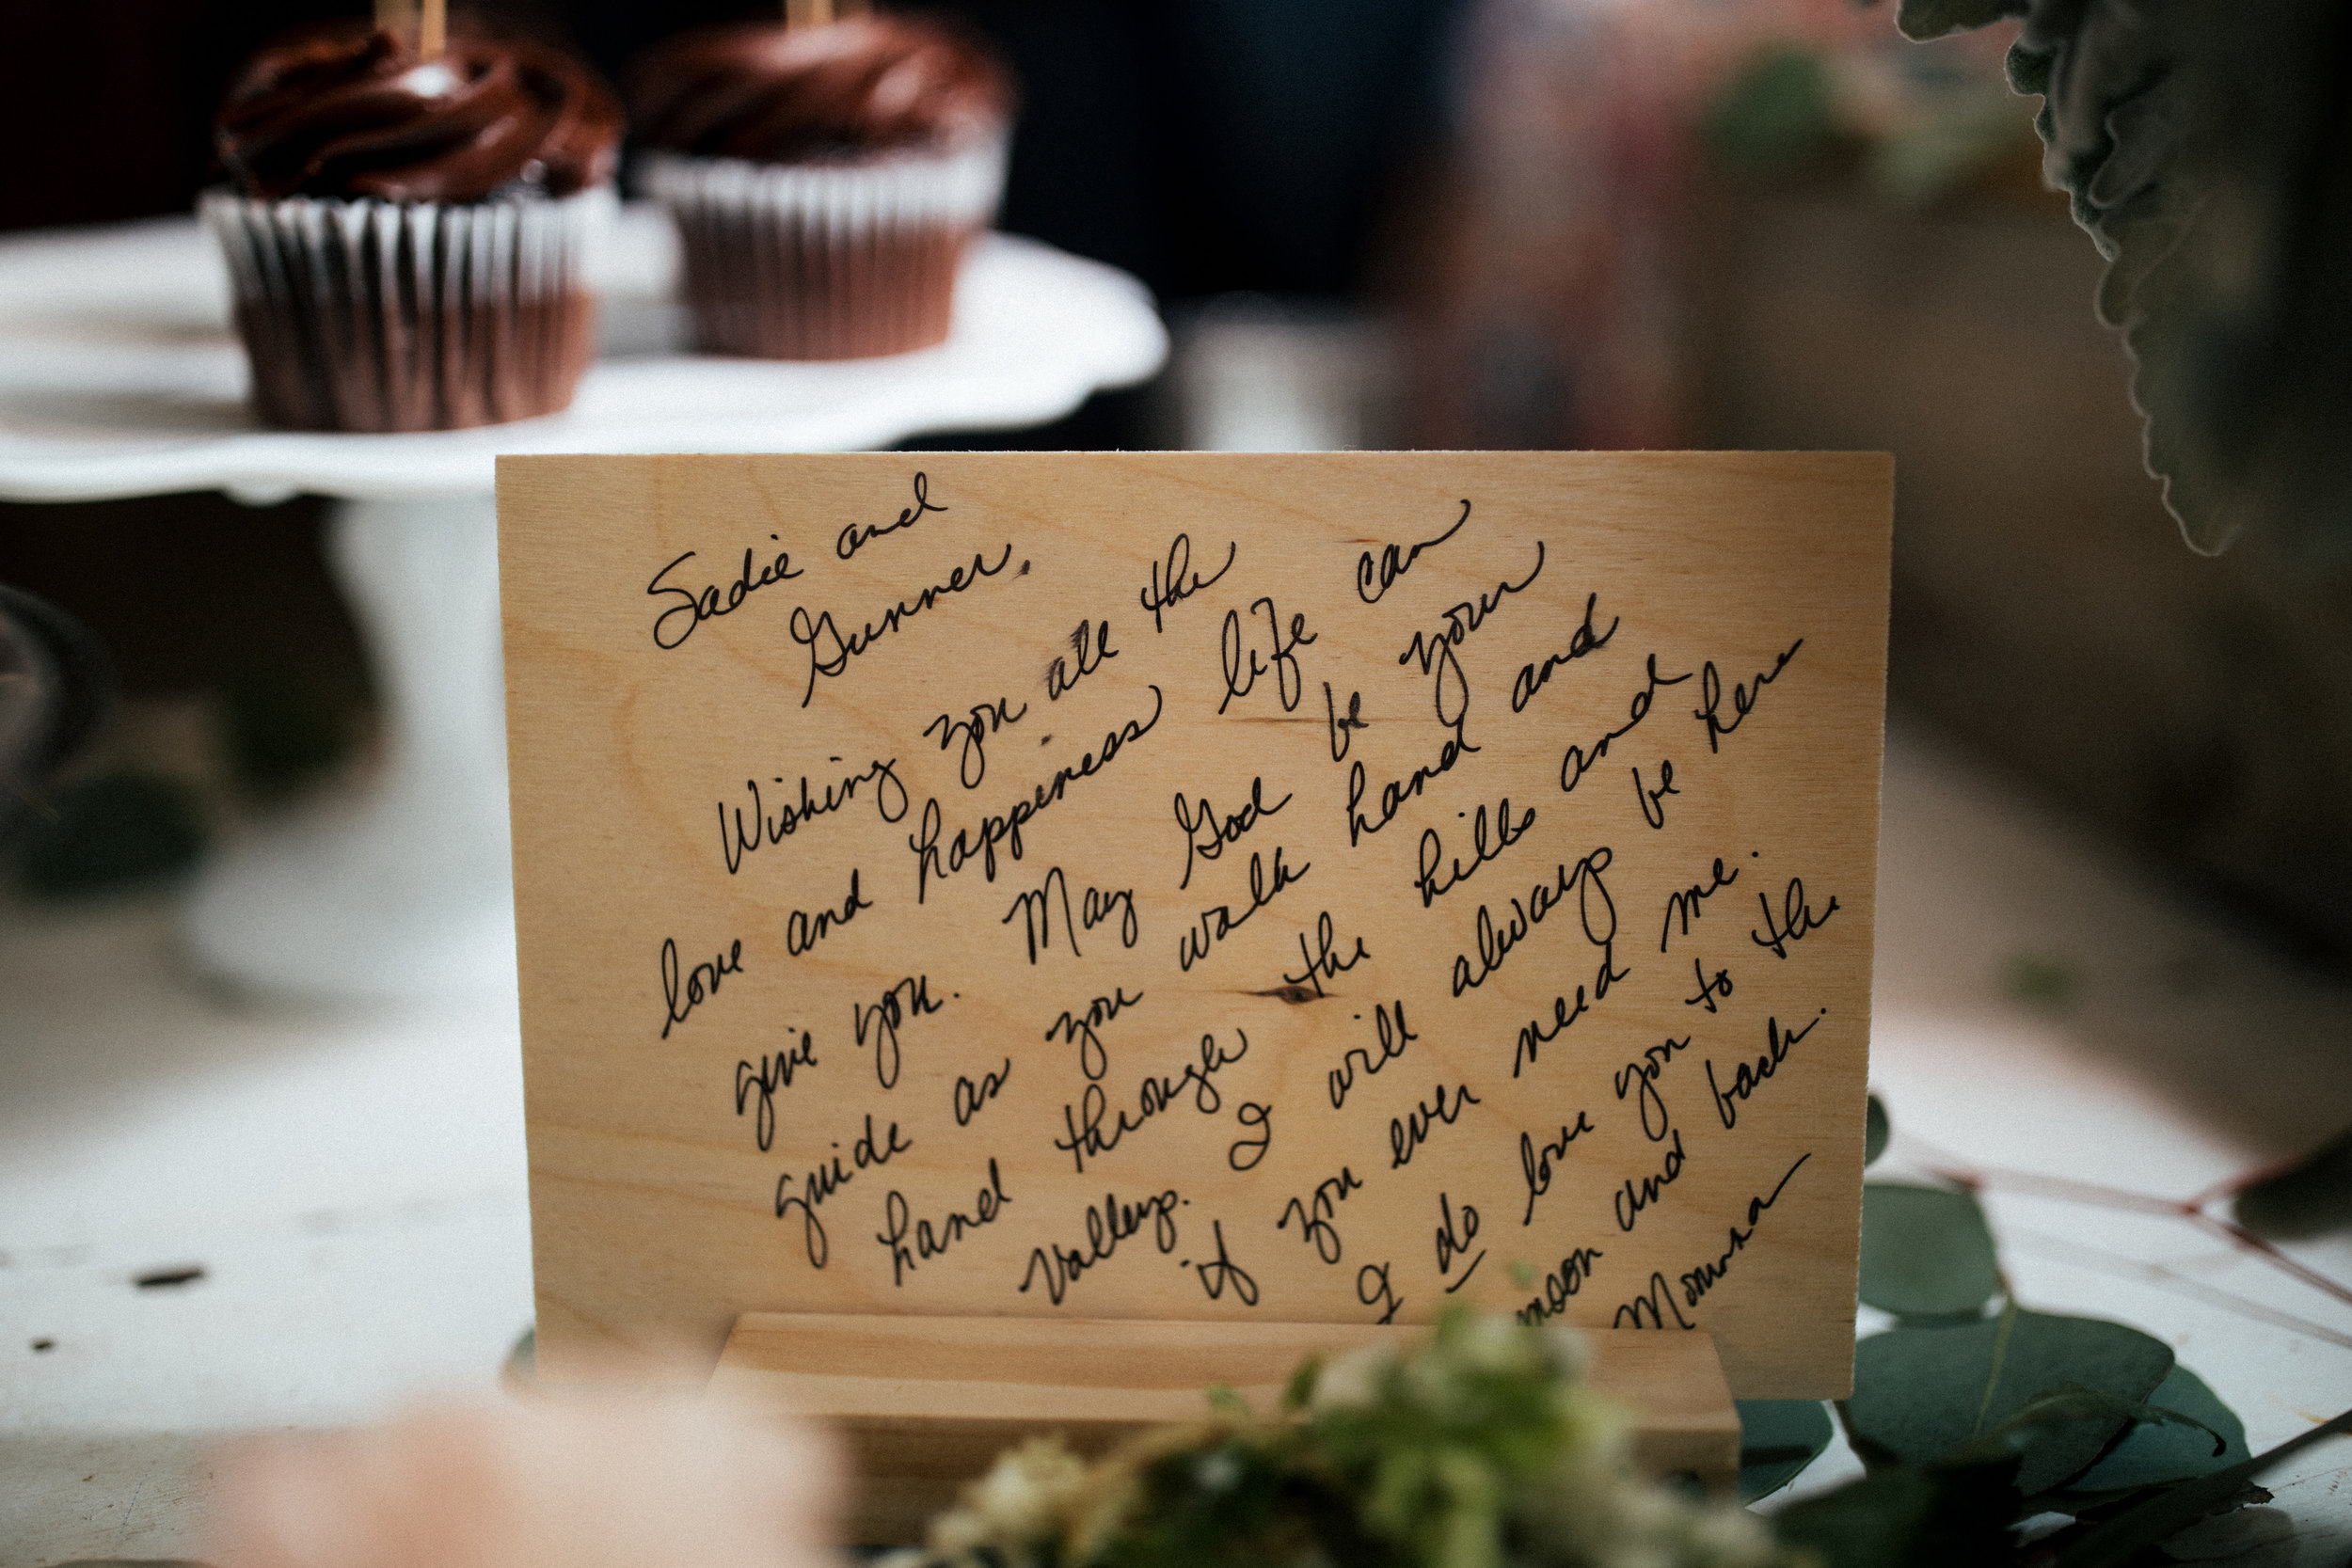 Sadie and
Gunner,
Wishing you all the
love and happiness life can
give you. May God be your
guide as you walk hand and
hand through the hills and
valleys. I will always be here
if you ever need me.
I do love you to the
moon and back.
Momma